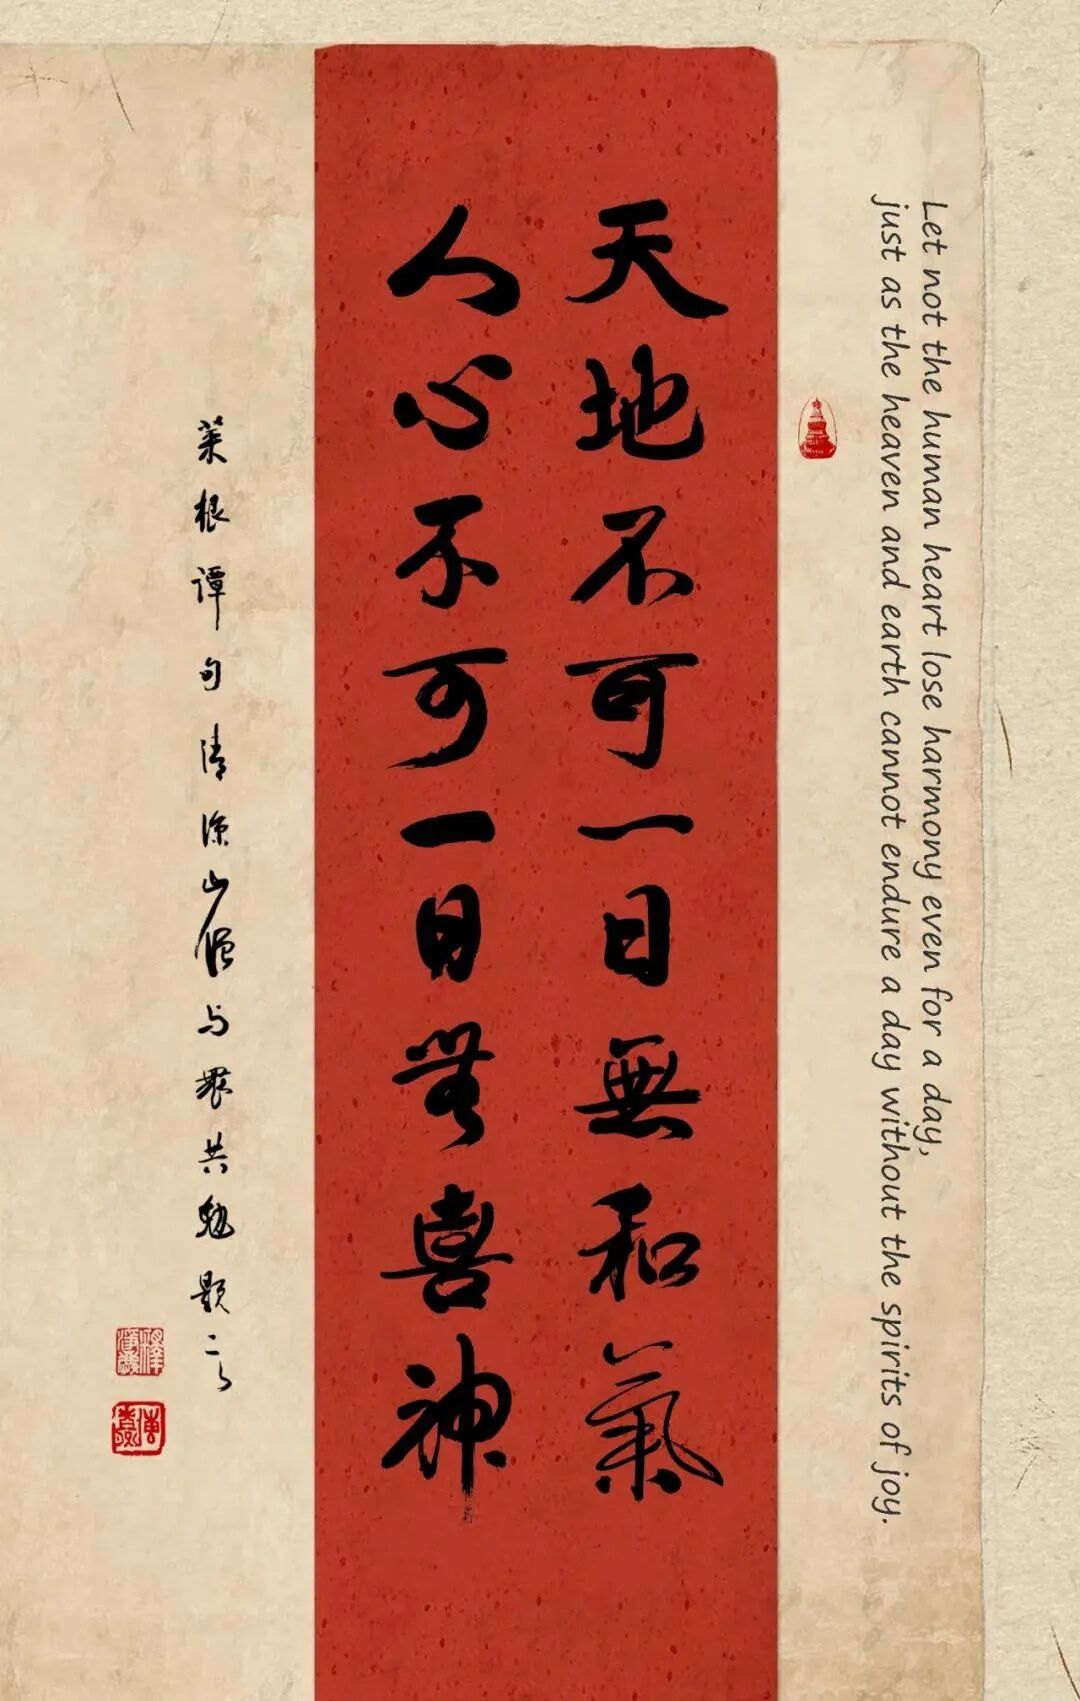 Let not the human heart lose harmony even for a day,
just as the heaven and earth cannot endure a day without the spirits of joy.
天地不可一日無和氣
人心不可一日無喜神
菜根谭句清凉山順与眾共勉題之